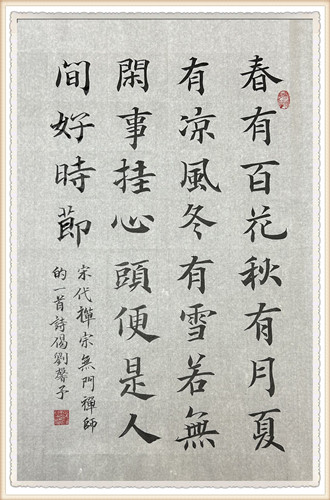 春有百花秋有月夏
有凉風冬有雪若無
閑事挂心頭便是人
間好時節
宋代禪宗無門禪師
的一首詩偈劉馨子